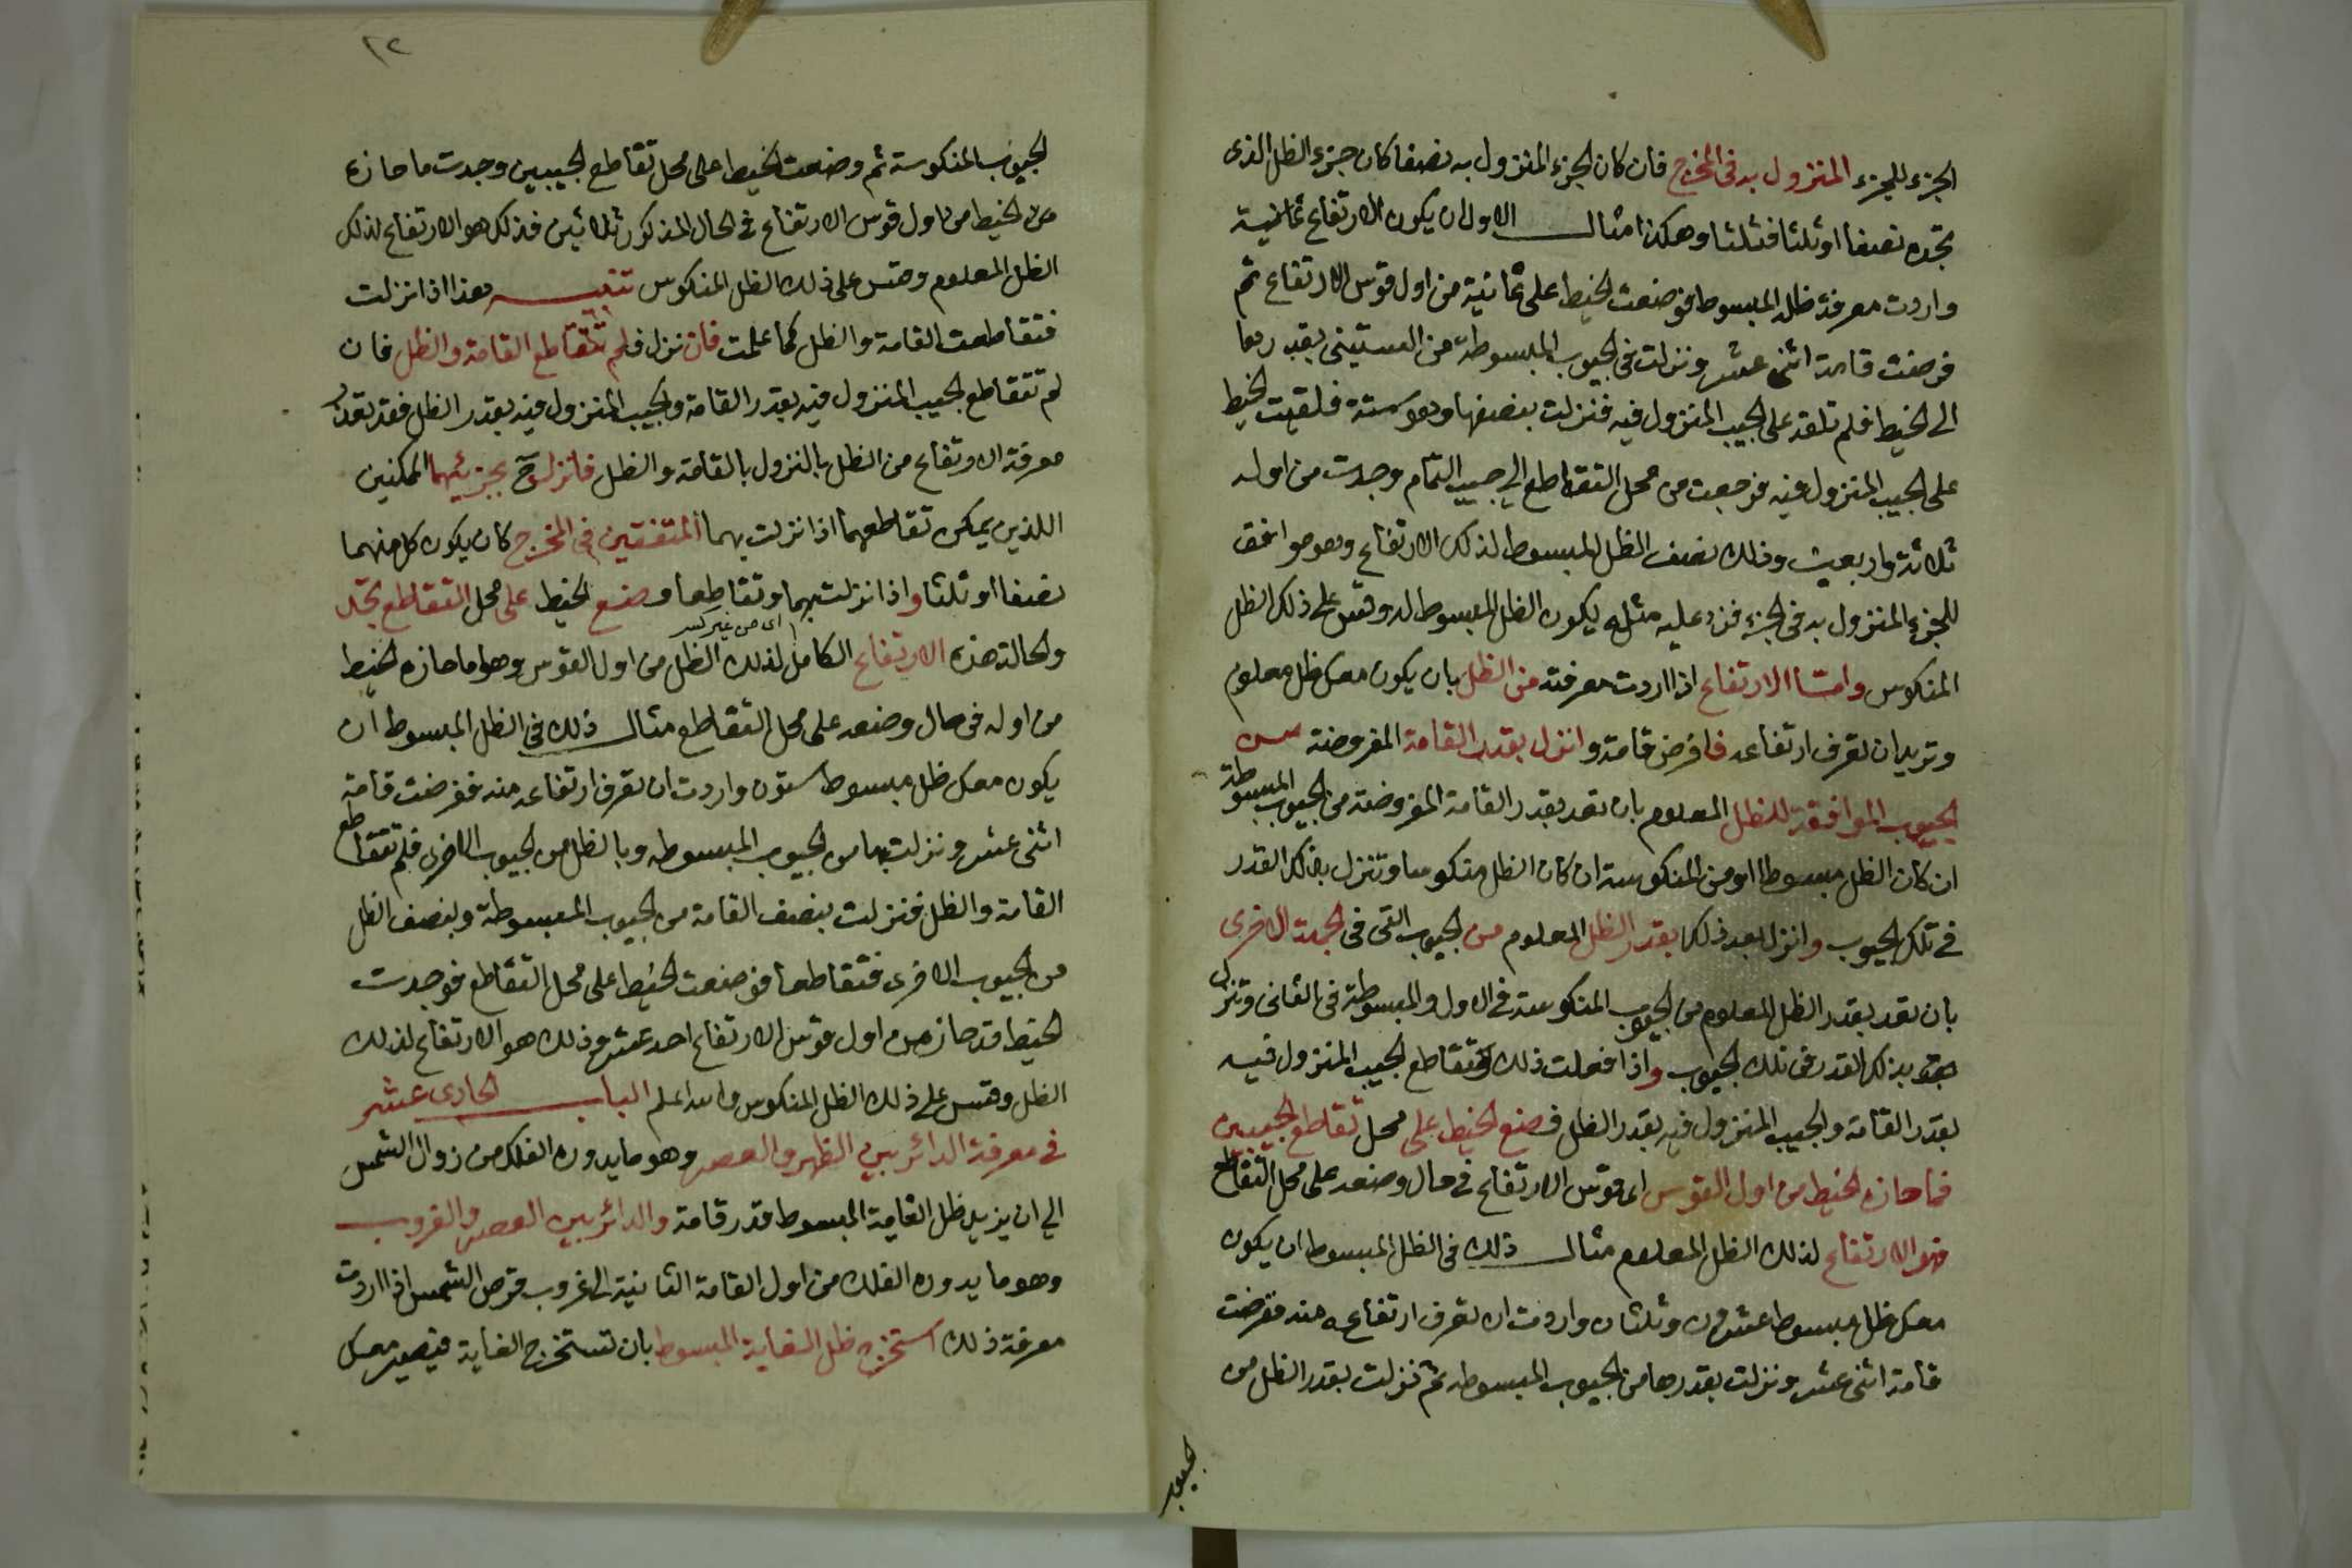 الجزء للجزء المنزول به في المخرج فان كان الجزء المنزول به نصفا كان جزء الظل الذى
تجده نصفا او ثلثا فثلثا وهكذا مثال الاول ان يكون الارتفاع ثمانية
واردت معرفة ظله المبسوط فوضعت الخيط على ثمانية من اول قوس الارتفاع ثم
فرضت قامة اثنى عشر ونزلت في الجيوب المبسوطة من الستينى بقدرها
الى الخيط فلم تلقه على الجيب المنزول فيه فنزلت بنصفها وهو ستة فلقيت الخيط
على الجيب المنزول فيه فرجعت من محل التقاطع الى جيب التمام وجدت من اوله
ثلاثة واربعين وذلك نصف الظل المبسوط لذلك الارتفاع وهو موافق
للجزء المنزول به في الجزء فزد عليه مثله يكون الظل المبسوط له وقس على ذلك الظل
المنكوس واما الارتفاع اذا اردت معرفته من الظل بان يكون معك ظل معلوم
وتريد ان تعرف ارتفاعه فافرض قامة وانزل بقدر القامة المفروضة من
الجيوب الموافقة للظل المعلوم بان تعد بقدر القامة المفروضة من الجيوب المبسوطة
ان كان الظل مبسوطا او من المنكوسة ان كان الظل منكوسا وتنزل بذلك القدر
في تلك الجيوب وانزل بعد ذلك بقدر الظل المعلوم من الجيوب التى في الجهة الاخرى
بان تعد بقدر الظل المعلوم من الجيوب المنكوسة في الاول والمبسوطة في الثانى وتنزل
بذلك القدر في تلك الجيوب واذا فعلت ذلك وتقاطع الجيب المنزول فيه
بقدر القامة والجيب المنزول فيه بقدر الظل فضع الخيط على محل تقاطع الجيبين
فما حازه الخيط من اول القوس اى قوس الارتفاع في حال وضعه على محل التقاطع
فهو الارتفاع لذلك الظل المعلوم مثال ذلك في الظل المبسوط ان يكون
معك ظل مبسوط عشرون وثلثان واردت ان تعرف ارتفاعه منه ففرضت
قامة اثنى عشر ونزلت بقدرها من الجيوب المبسوطه ثم نزلت بقدر الظل من
الجيوب
١٢
الجيوب المنكوسة ثم وضعت الخيط على محل تقاطع الجيبين وجدت ما حازه
من الخيط من اول قوس الارتفاع في الحال المذكور ثلاثين فذلك هو الارتفاع لذلك
الظل المعلوم وقس على ذلك الظل المنكوس تنبيه هذا اذا نزلت
فتقاطعت القامة والظل كما علمت فان نزل فلم تتقاطع القامة والظل فان
لم تتقاطع الجيب المنزول فيه بقدر القامة والجيب المنزول فيه بقدر الظل فقد تعذر
معرفة الارتفاع من الظل بالنزول بالقامة والظل فانزل ح بجزئيهما الممكنين
اللذين يمكن تقاطعهما اذا نزلت بهما المتفقين في المخرج كان يكون كل منهما
نصفا او ثلثا واذا نزلت بهما وتقاطعا وضع الخيط على محل التقاطع تجد
اى من غير كسر
والحالة هذه الارتفاع الكامل لذلك الظل من اول القوس وهو ما حازه الخيط
من اوله في حال وضعه على محل التقاطع مثال ذلك في الظل المبسوط ان
يكون معك ظل مبسوط ستون واردت ان تعرف ارتفاعه منه ففرضت قامة
اثنى عشر ونزلت بها من الجيوب المبسوطه وبالظل من الجيوب الاخرى فلم تتقاطع
القامة والظل فنزلت بنصف القامة من الجيوب المبسوطة وبنصف الظل
من الجيوب الاخرى فتقاطعا فوضعت الخيط على محل التقاطع فوجدت
الخيط قد حاز من اول قوس الارتفاع احد عشر وذلك هو الارتفاع لذلك
الظل وقس على ذلك الظل المنكوس والله اعلم الباب الحادى عشر
في معرفة الدائر بين الظهر والعصر وهو ما يدوره الفلك من زوال الشمس
الى ان يزيد ظل القامة المبسوط قدر قامة والدائر بين العصر والغروب
وهو ما يدوره الفلك من اول القامة الثانية الى غروب قرص الشمس اذا اردت
معرفة ذلك استخرج ظل الغاية المبسوط بان تستخرج الغاية فيصير معك